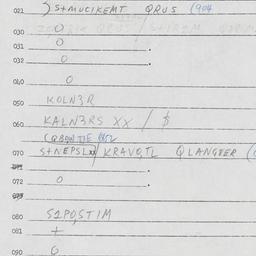 021 S+MUCIKEMT QRUS (904
030 O
031 O .
032 O .
040 O
050 KOLN3R
060 KALN3RS XX / $
070 S+NEPSLXX KRAVO,TL QLANGTER
071
072 O .
080 S1PO,STIM
081 +
090 O